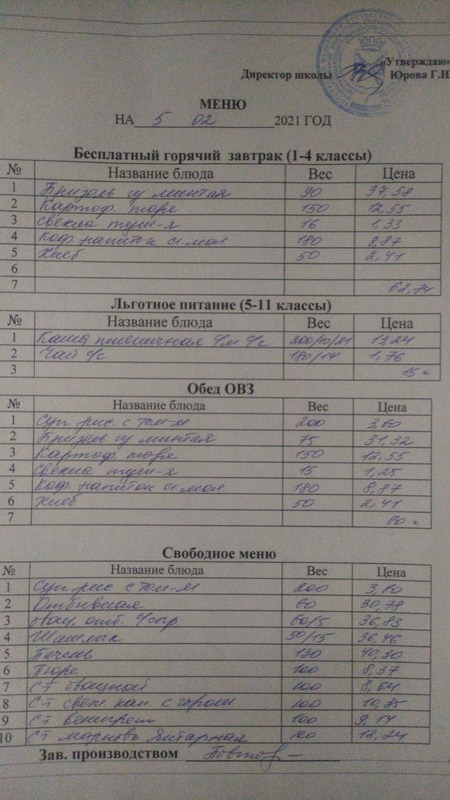 «Утверждаю»
Директор школы Юрова Г.И
МЕНЮ
НА 5 02 2021 ГОД
Бесплатный горячий завтрак (1-4 классы)
№ Название блюда Вес Цена
1 Бризоль из минтая 90 37,58
2 Картоф. пюре 150 12,55
3 Свекла туш-я 16 1,33
4 Коф. напиток с мол 180 8,87
5 Хлеб 50 2,41
6
7 62,74
Льготное питание (5-11 классы)
№ Название блюда Вес Цена
1 Каша пшеничная 200/10/21 13,24
2 Чай с/с 180/14 1,76
3 15=
Обед ОВЗ
№ Название блюда Вес Цена
1 Суп рис с том-м 200 3,60
2 Бризоль из минтая 75 31,32
3 Картоф. пюре 150 12,55
4 Свекла туш-я 15 1,25
5 Коф. напиток с мол 180 8,87
6 Хлеб 50 2,41
7 60=
Свободное меню
№ Название блюда Вес Цена
1 Суп рис с том-м 200 3,60
2 Отбивная 60 30,78
3 отб. с/сыр 60/5 36,83
4 Шашлык 50/15 36,46
5 Печень 130 40,30
6 Пюре 100 8,37
7 С-т овощной 100 8,64
8 С-т свеж. кап. с горош 100 10,35
9 С-т венигрет 100 9,14
10 С-т морковь Янтарная 100 12,24
Зав. производством